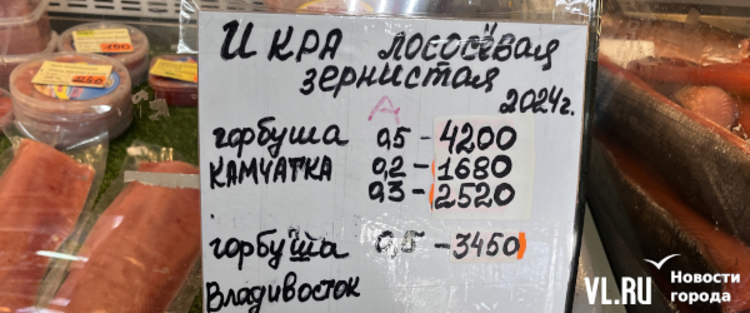 ИКРА лососёвая
зернистая
2024г.
А
горбуша 0,5 - 4200
КАМЧАТКА 0,2 - 1680
0,3 - 2520
горбуша 0,5 - 3450
Владивосток
VL.RU Новости
города